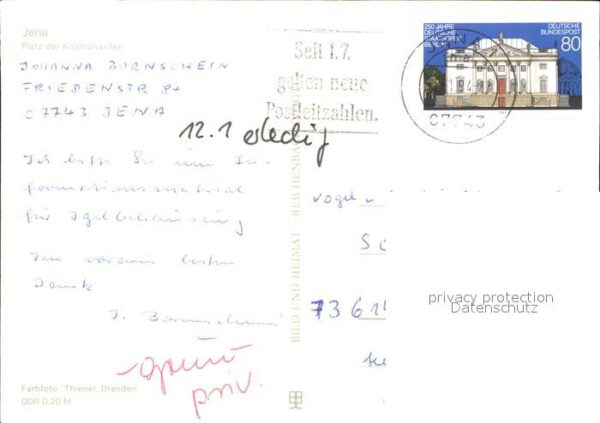 Jena
Platz der Kosmonauten
JOHANNA BORNSCHEIN
FRIEDENSTR 84
07743 JENA
Seit 1.7.
gelten neue
Postleitzahlen.
250 JAHRE
DEUTSCHE
STAATSOPER
BERLIN
DEUTSCHE
BUNDESPOST
80
07743
12.1 erledigt
Ich bitte Sie um In-
formationsmaterial
für Igelbehausung
Im voraus besten
Dank
J. Bornschein
BILD UND HEIMAT · REICHENBACH
Vogel u
73614
privacy protection
Datenschutz
priv.
Farbfoto: Thienel, Dresden
DDR 0,20 M